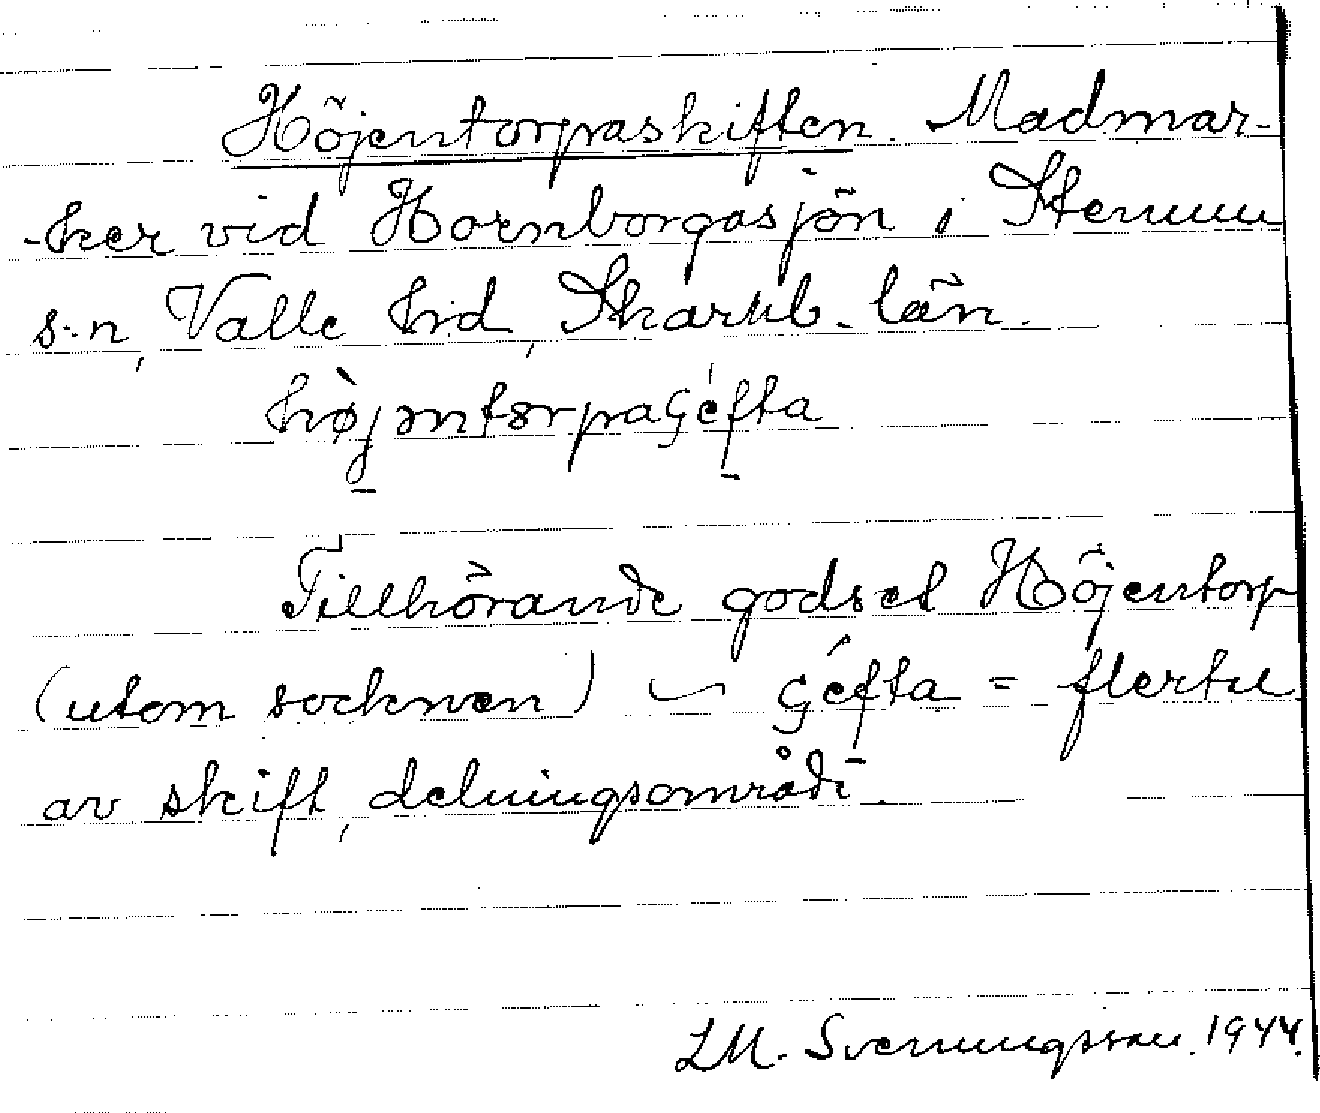 Höjentorpaskiften. Madmar-
-ker vid Hornborgasjön i Stenum
s-n, Valle hd, Skarab. län.
Tillhörande godset Höjentorp
(utom socknen) — ʃéfta = flertal
av skift, delningsområde.
LM. Svenungsson. 1944.